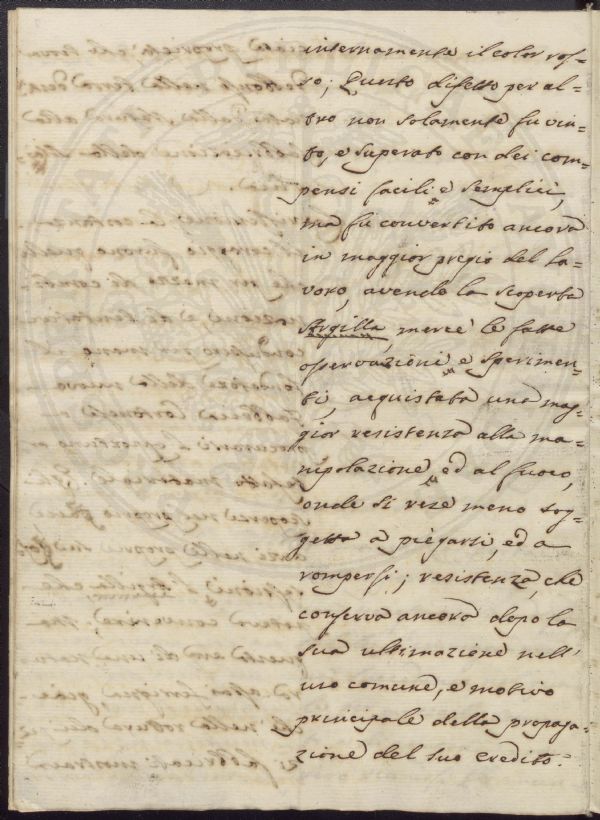 internamente il color ros-
so; Questo difetto per al-
tro non solamente fu vin-
to, e superato con dei com-
pensi facili e semplici,
ma fu convertito ancora
in maggior pregio del la-
voro, avendo la scoperta
Argilla, mercè le fatte
osservazioni e sperimen-
ti, acquistata una mag-
gior resistenza alla ma-
nipolazione ed al fuoco,
onde si rese meno sog-
getta a piegarsi, ed a
rompersi; resistenza, che
conserva ancora dopo la
sua ultimazione nell'
uso comune, e motivo
principale della propaga-
zione del suo credito.